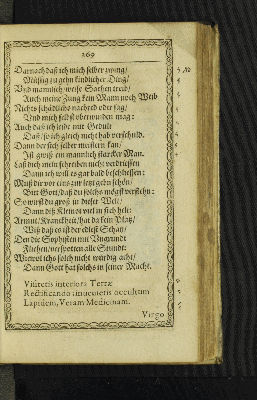 169
Darnach daß ich mich selber zwing/
Müssig zu gehn kindlicher Ding/
Vnd mannlich weise Sachen treib/
Auch meine Zung kein Mann noch Weib
Nichts schädlichs nachred oder sag/
Vnd mich selbst vberwinden mag:
Auch daß ich leide mit Gedult
Daß/ so ich gleich nicht hab verschuld.
Dann der sich selber meistern kan/
Ist gwiß ein mannlich starcker Man.
Laß dich mein schreiben nicht verdriessen
Dann ich will es gar bald beschliessen:
Muß dir vor eins zur letzt gebn schön/
Bitt Gott/ daß du solchs mögst verstehn:
So wirst du groß in dieser Welt/
Dann diß Kleinot viel in sich helt:
Armut/ Kranckheit/ hat da kein Platz/
Wiß daß es ist der edlest Schatz/
Den die Sophisten mit Vngrundt
verspotten alle Stundt:
Wiewol ichs solch nicht würdig acht/
Dann Gott hat solchs in seiner Macht.
Visitetis interiora Terræ
Rectificando: inuenietis occultum
Lapidem, Veram Medicinam.
Virgo